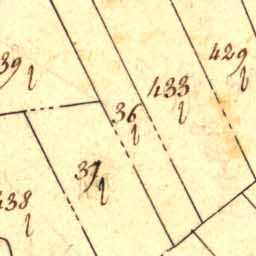 429
39
433
36
37
438